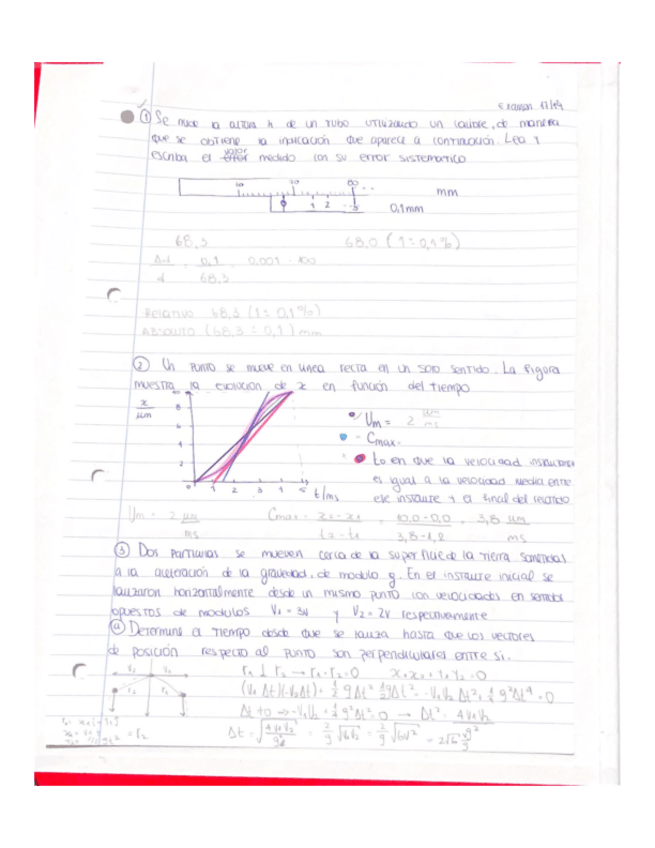 Examen 17/19
① Se mide la altura h de un tubo utilizando un calibre, de manera
que se obtiene la indicación que aparece a continuación. Lea y
escriba el valor medido con su error sistematico
mm
1 2
0,1mm
68,3
68,0 (1±0,1%)
Δd 0,1 0,001 · 100
d 68,3
Relativo 68,3 (1± 0,1%)
Absoluto (68,3 ± 0,1) mm
② Un punto se mueve en linea recta en un solo sentido. La figura
muestra la evolución de x en función del tiempo
x/μm
8
6
4
2
0 1 2 3 4 5 t/ms
Um = 2 μm/ms
Cmax.
to en que la velocidad instantanea
es igual a la velocidad media entre
ese instante y el final del recorrido
Um = 2 μm/ms Cmax = x2-x1/t2-t1 = 10,0-0,0/3,8-1,2 = 3,8 μm/ms
③ Dos particulas se mueven cerca de la superficie de la tierra sometidas
a la aceleración de la gravedad, de modulo g. En el instante inicial se
lanzaron horizontalmente desde un mismo punto con velocidades en sentidos
opuestos de modulos V1 = 3v y V2 = 2v respectivamente
ⓐ Determine el tiempo desde que se lanza hasta que los vectores
de posición respecto al punto son perpendiculares entre si.
V2 V1
r2 r1
r1 ⊥ r2 → r1·r2=0 x1x2 + y1y2 = 0
(V1Δt)(-V2Δt) + ½gΔt² ½gΔt² = -V1V2Δt² + ¼g²Δt⁴ = 0
Δt≠0 → -V1V2 + ¼g²Δt² = 0 → Δt² = 4V1V2
Δt = √4V1V2/g² = 2/g √6V² = 2/g √6V² = 2√6 v/g